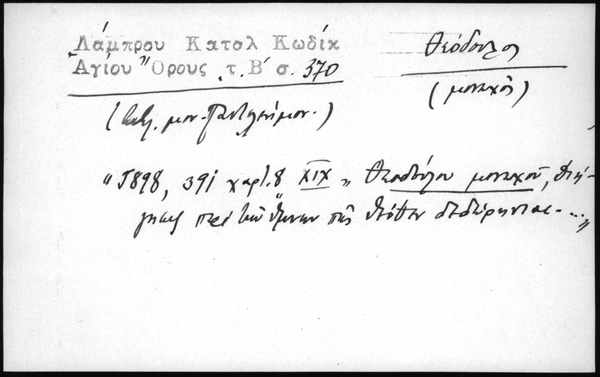 Λάμπρου Κατολ Κωδίκ
Ἁγίου Ὄρους τ. Β΄ σ. 370
Θεόδουλος
(μοναχός)
(Βιβλ. μον. Παντελεήμον.)
"5898, 391 χαρτ. 8 XIX " Θεοδούλου μοναχοῦ, διή-
γησις περὶ τῶν ὕμνων πῶς